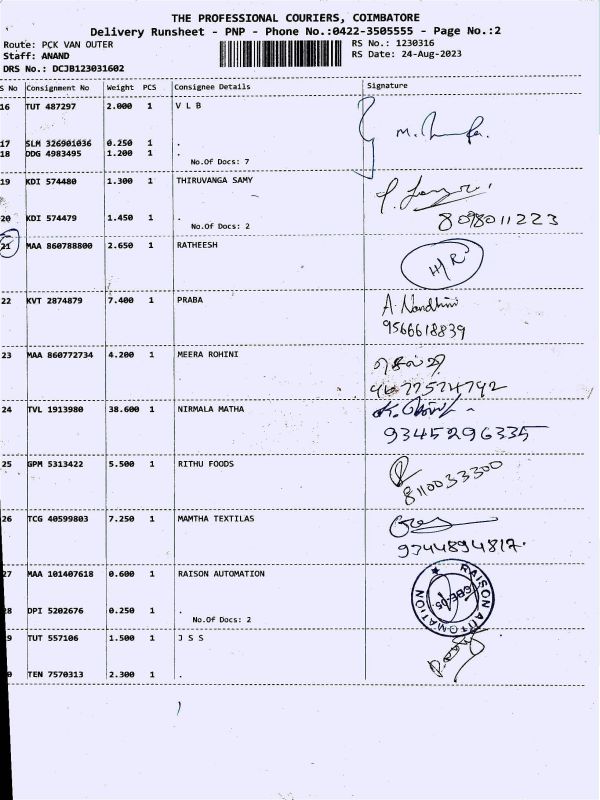 THE PROFESSIONAL COURIERS, COIMBATORE
Delivery Runsheet - PNP - Phone No.:0422-3505555 - Page No.:2
Route: PCK VAN OUTER RS No.: 1230316
Staff: ANAND RS Date: 24-Aug-2023
DRS No.: DCJB123031602
S No Consignment No Weight PCS Consignee Details Signature
16 TUT 487297 2.000 1 V L B
17 SLM 326901036 0.250 1 .
18 DDG 4983495 1.200 1 .
No.Of Docs: 7
19 KDI 574480 1.300 1 THIRUVANGA SAMY
20 KDI 574479 1.450 1 .
No.Of Docs: 2
8098011223
21 MAA 860788800 2.650 1 RATHEESH
H/R
22 KVT 2874879 7.400 1 PRABA A. Nandhini
9566618839
23 MAA 860772734 4.200 1 MEERA ROHINI
24 TVL 1913980 38.600 1 NIRMALA MATHA
9345296335
25 GPM 5313422 5.500 1 RITHU FOODS
8110033300
26 TCG 40599803 7.250 1 MAMTHA TEXTILAS
9344894817.
27 MAA 101407618 0.600 1 RAISON AUTOMATION
RAISON AUTOMATION
28 DPI 5202676 0.250 1 .
No.Of Docs: 2
9 TUT 557106 1.500 1 J S S
0 TEN 7570313 2.300 1 .